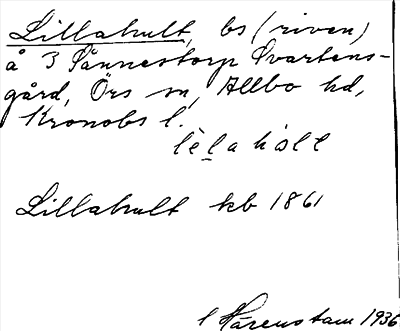 Lillahult, bs (riven)
å 3 Sånnestorp Svartens-
gård, Örs sn, Allbo hd,
Kronobs l.
Lillahult kb 1861
Härenstam 1936